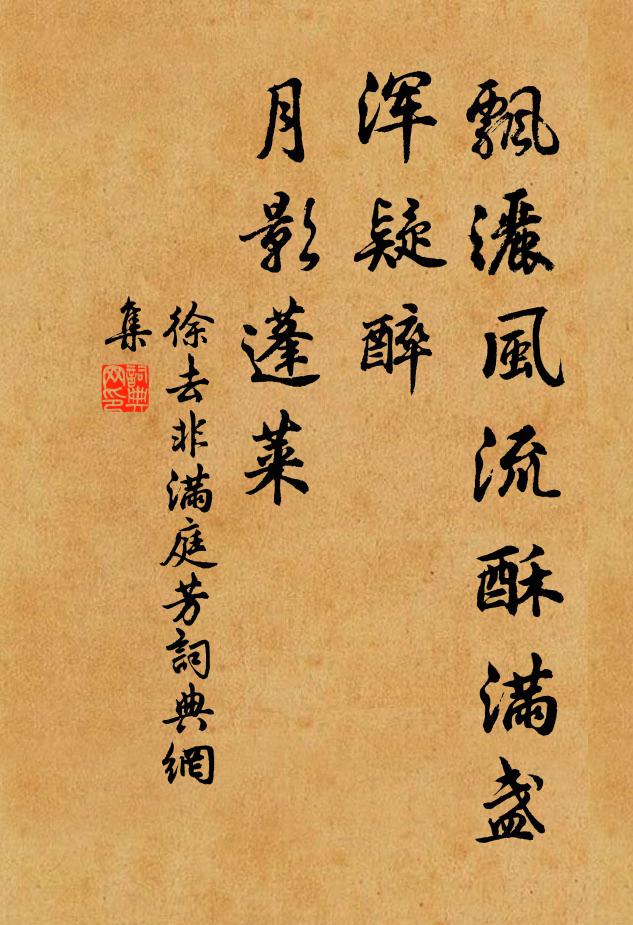 飄灑風流酥滿盞
浑疑醉
月影蓬萊
徐去非满庭芳詞典網
集
詞典
网印